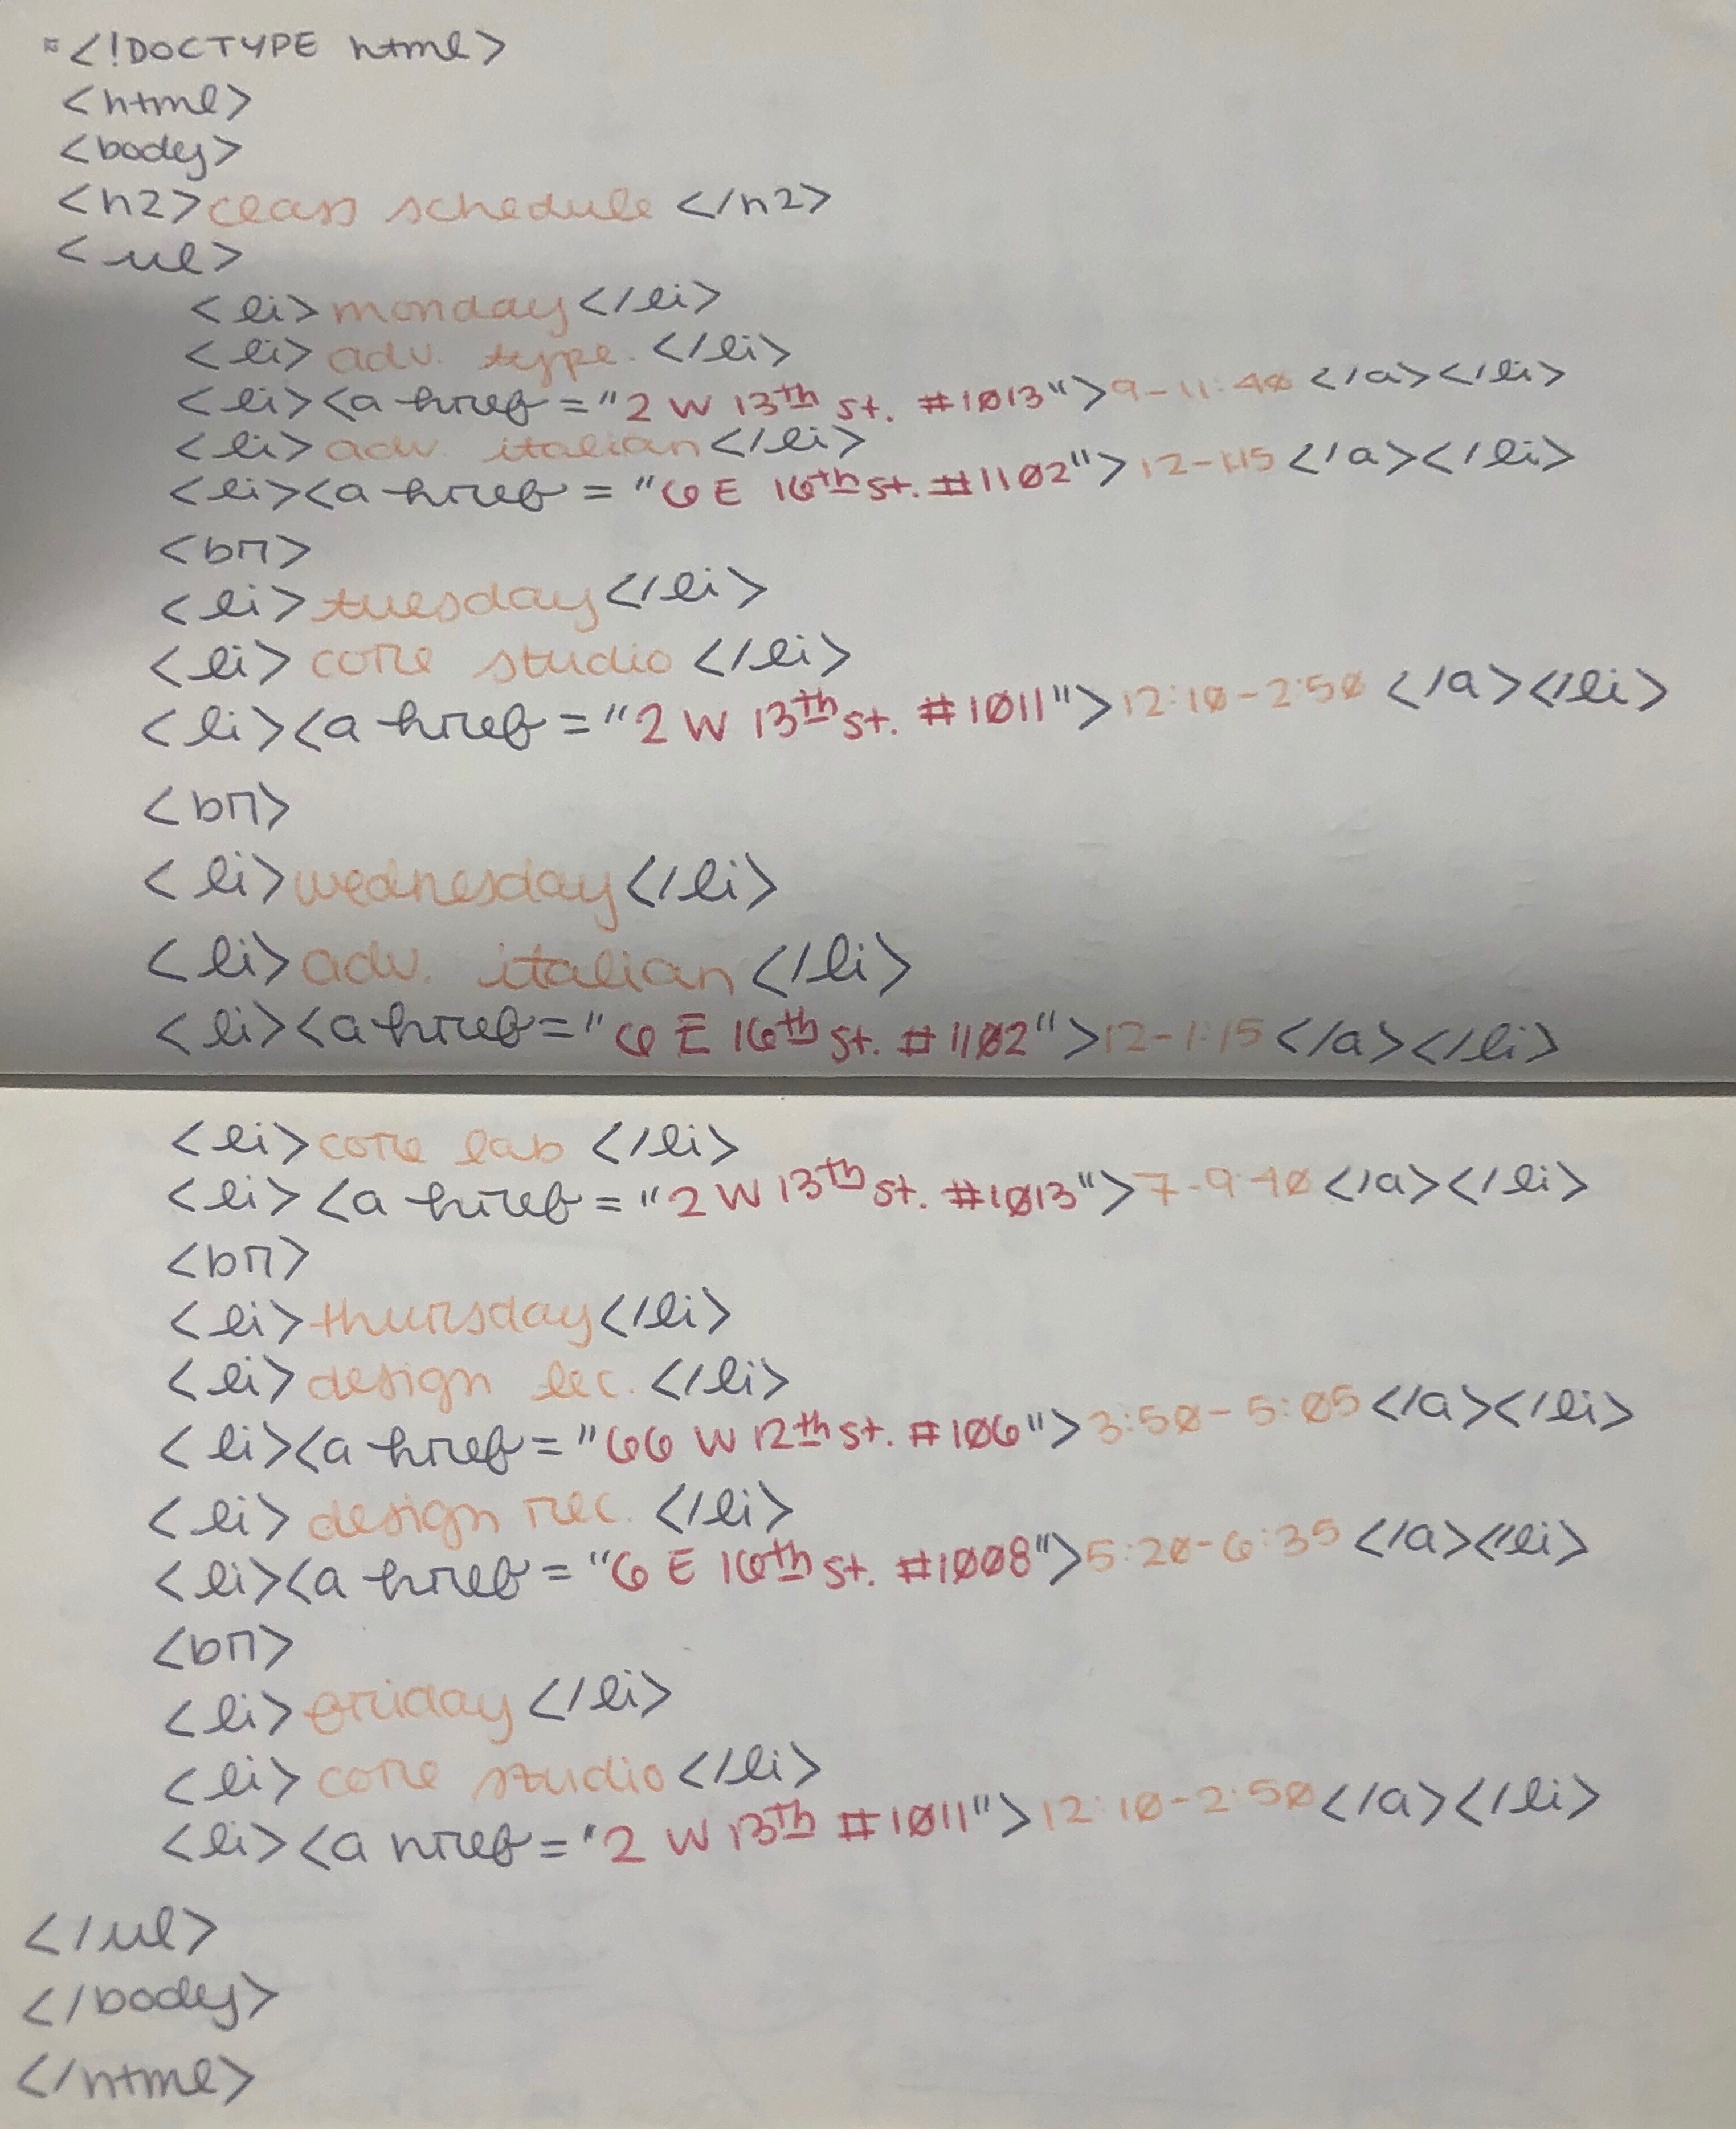 <!DOCTYPE html>
<html>
<body>
<h2>class schedule </h2>
<ul>
<li>monday</li>
<li>adv. type. </li>
<li><a href="2 W 13th St. #1013">9-11:40 </a></li>
<li>adv. italian</li>
<li><a href = "6 E 16th St. #1102">12-1:15 </a></li>
<br>
<li>tuesday</li>
<li> core studio </li>
<li><a href="2 W 13th St. #1011">12:10-2:50 </a></li>
<br>
<li>wednesday</li>
<li>adv. italian</li>
<li><a href="6 E 16th St. #1102">12-1:15</a></li>
<li>core lab </li>
<li><a href="2 W 13th St. #1013">7-9:40</a></li>
<br>
<li>thursday</li>
<li>design lec. </li>
<li><a href="66 W 12th St. #106">3:50-5:05</a></li>
<li>design rec. </li>
<li><a href="6 E 16th St. #1008">5:20-6:35 </a></li>
<br>
<li>friday</li>
<li>core studio</li>
<li><a href="2 W 13th #1011">12:10-2:50</a></li>
</ul>
</body>
</html>